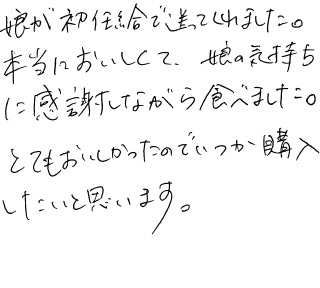 娘が初任給で送ってくれました。
本当においしくて、娘の気持ち
に感謝しながら食べました。
とてもおいしかったのでいつか購入
したいと思います。